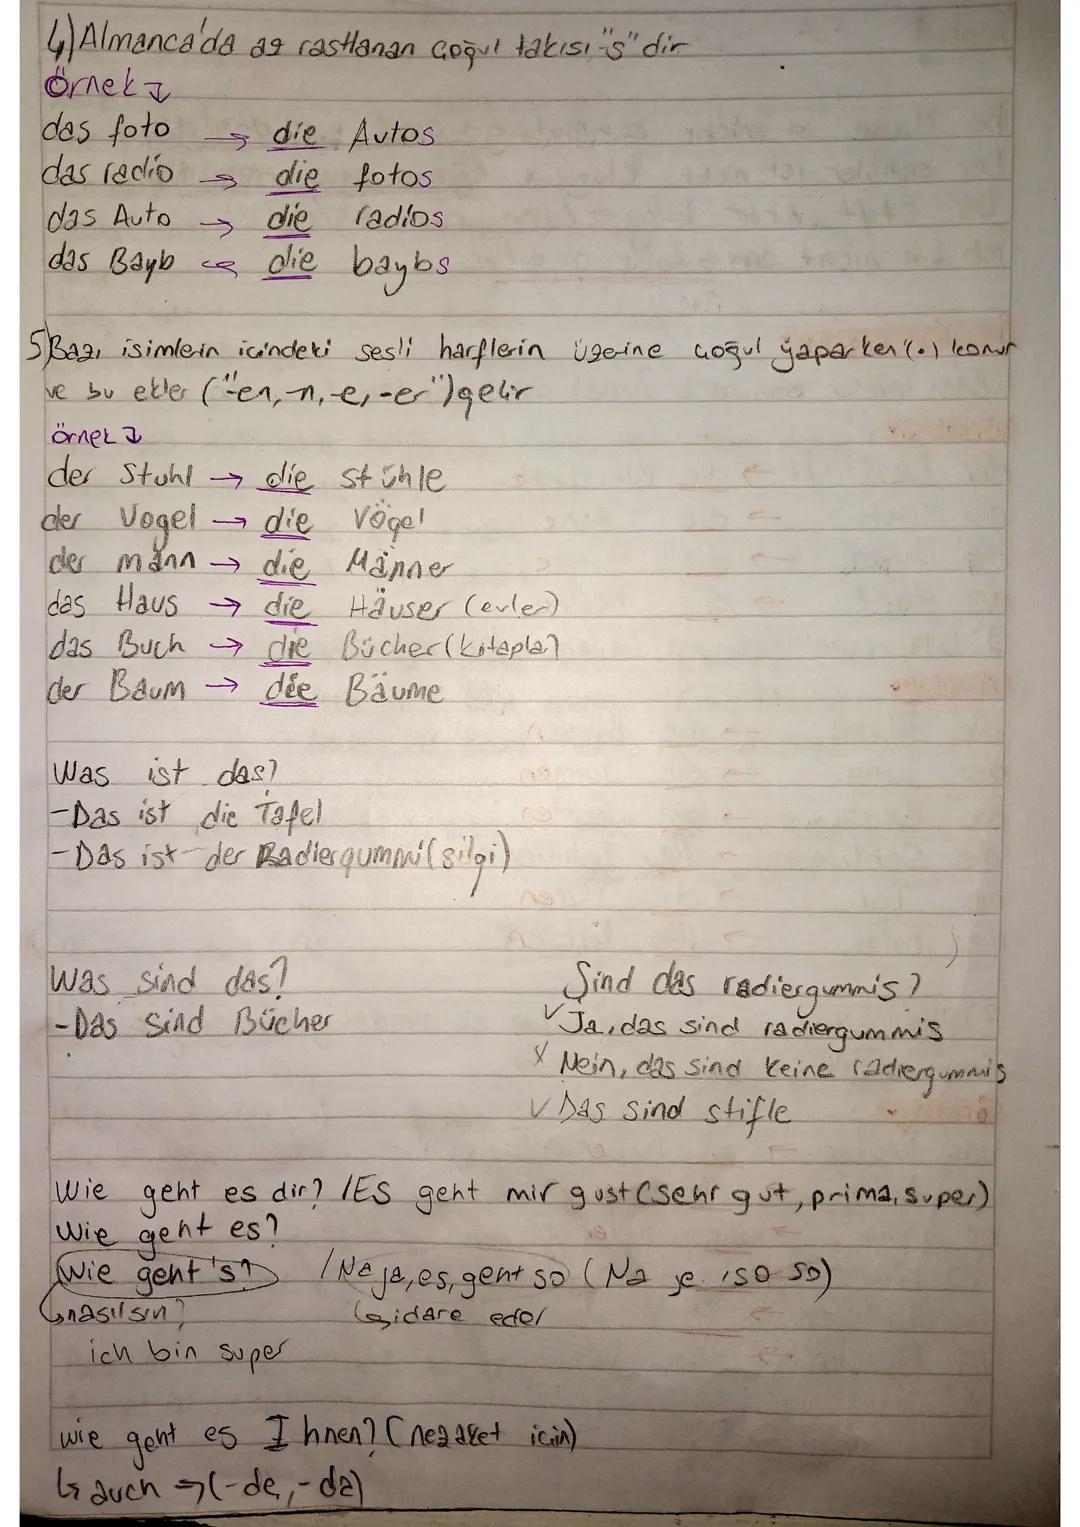 4) Almanca'da az rastlanan çoğul takısı "s" dir
Örnek
das foto → die Autos
das radio → die fotos
das Auto → die radios
das Bayb → die baybs
5) Bazı isimlerin içindeki sesli harflerin üzerine çoğul yaparken (..) konur
ve bu ekler ("-en, -n, -e, -er") gelir
örnek
der Stuhl → die stühle
der Vogel → die Vögel
der mann → die Männer
das Haus → die Häuser (evler)
das Buch → die Bücher (kitaplar)
der Baum → die Bäume
Was ist das?
- Das ist die Tafel
- Das ist der Radiergummi (silgi)
Was sind das?
- Das sind Bücher
Sind das radiergummis?
✓ Ja, das sind radiergummis
x Nein, das sind keine radiergummis
✓ Das sind stifle
Wie geht es dir? / Es geht mir gust (sehr gut, prima, super)
Wie geht es?
Wie geht's? / Na ja, es, geht so (Na je, so so)
↳ nasılsın? ↳ idare eder
ich bin super
wie geht es Ihnen? (nezaket için)
↳ auch → (-de, -da)